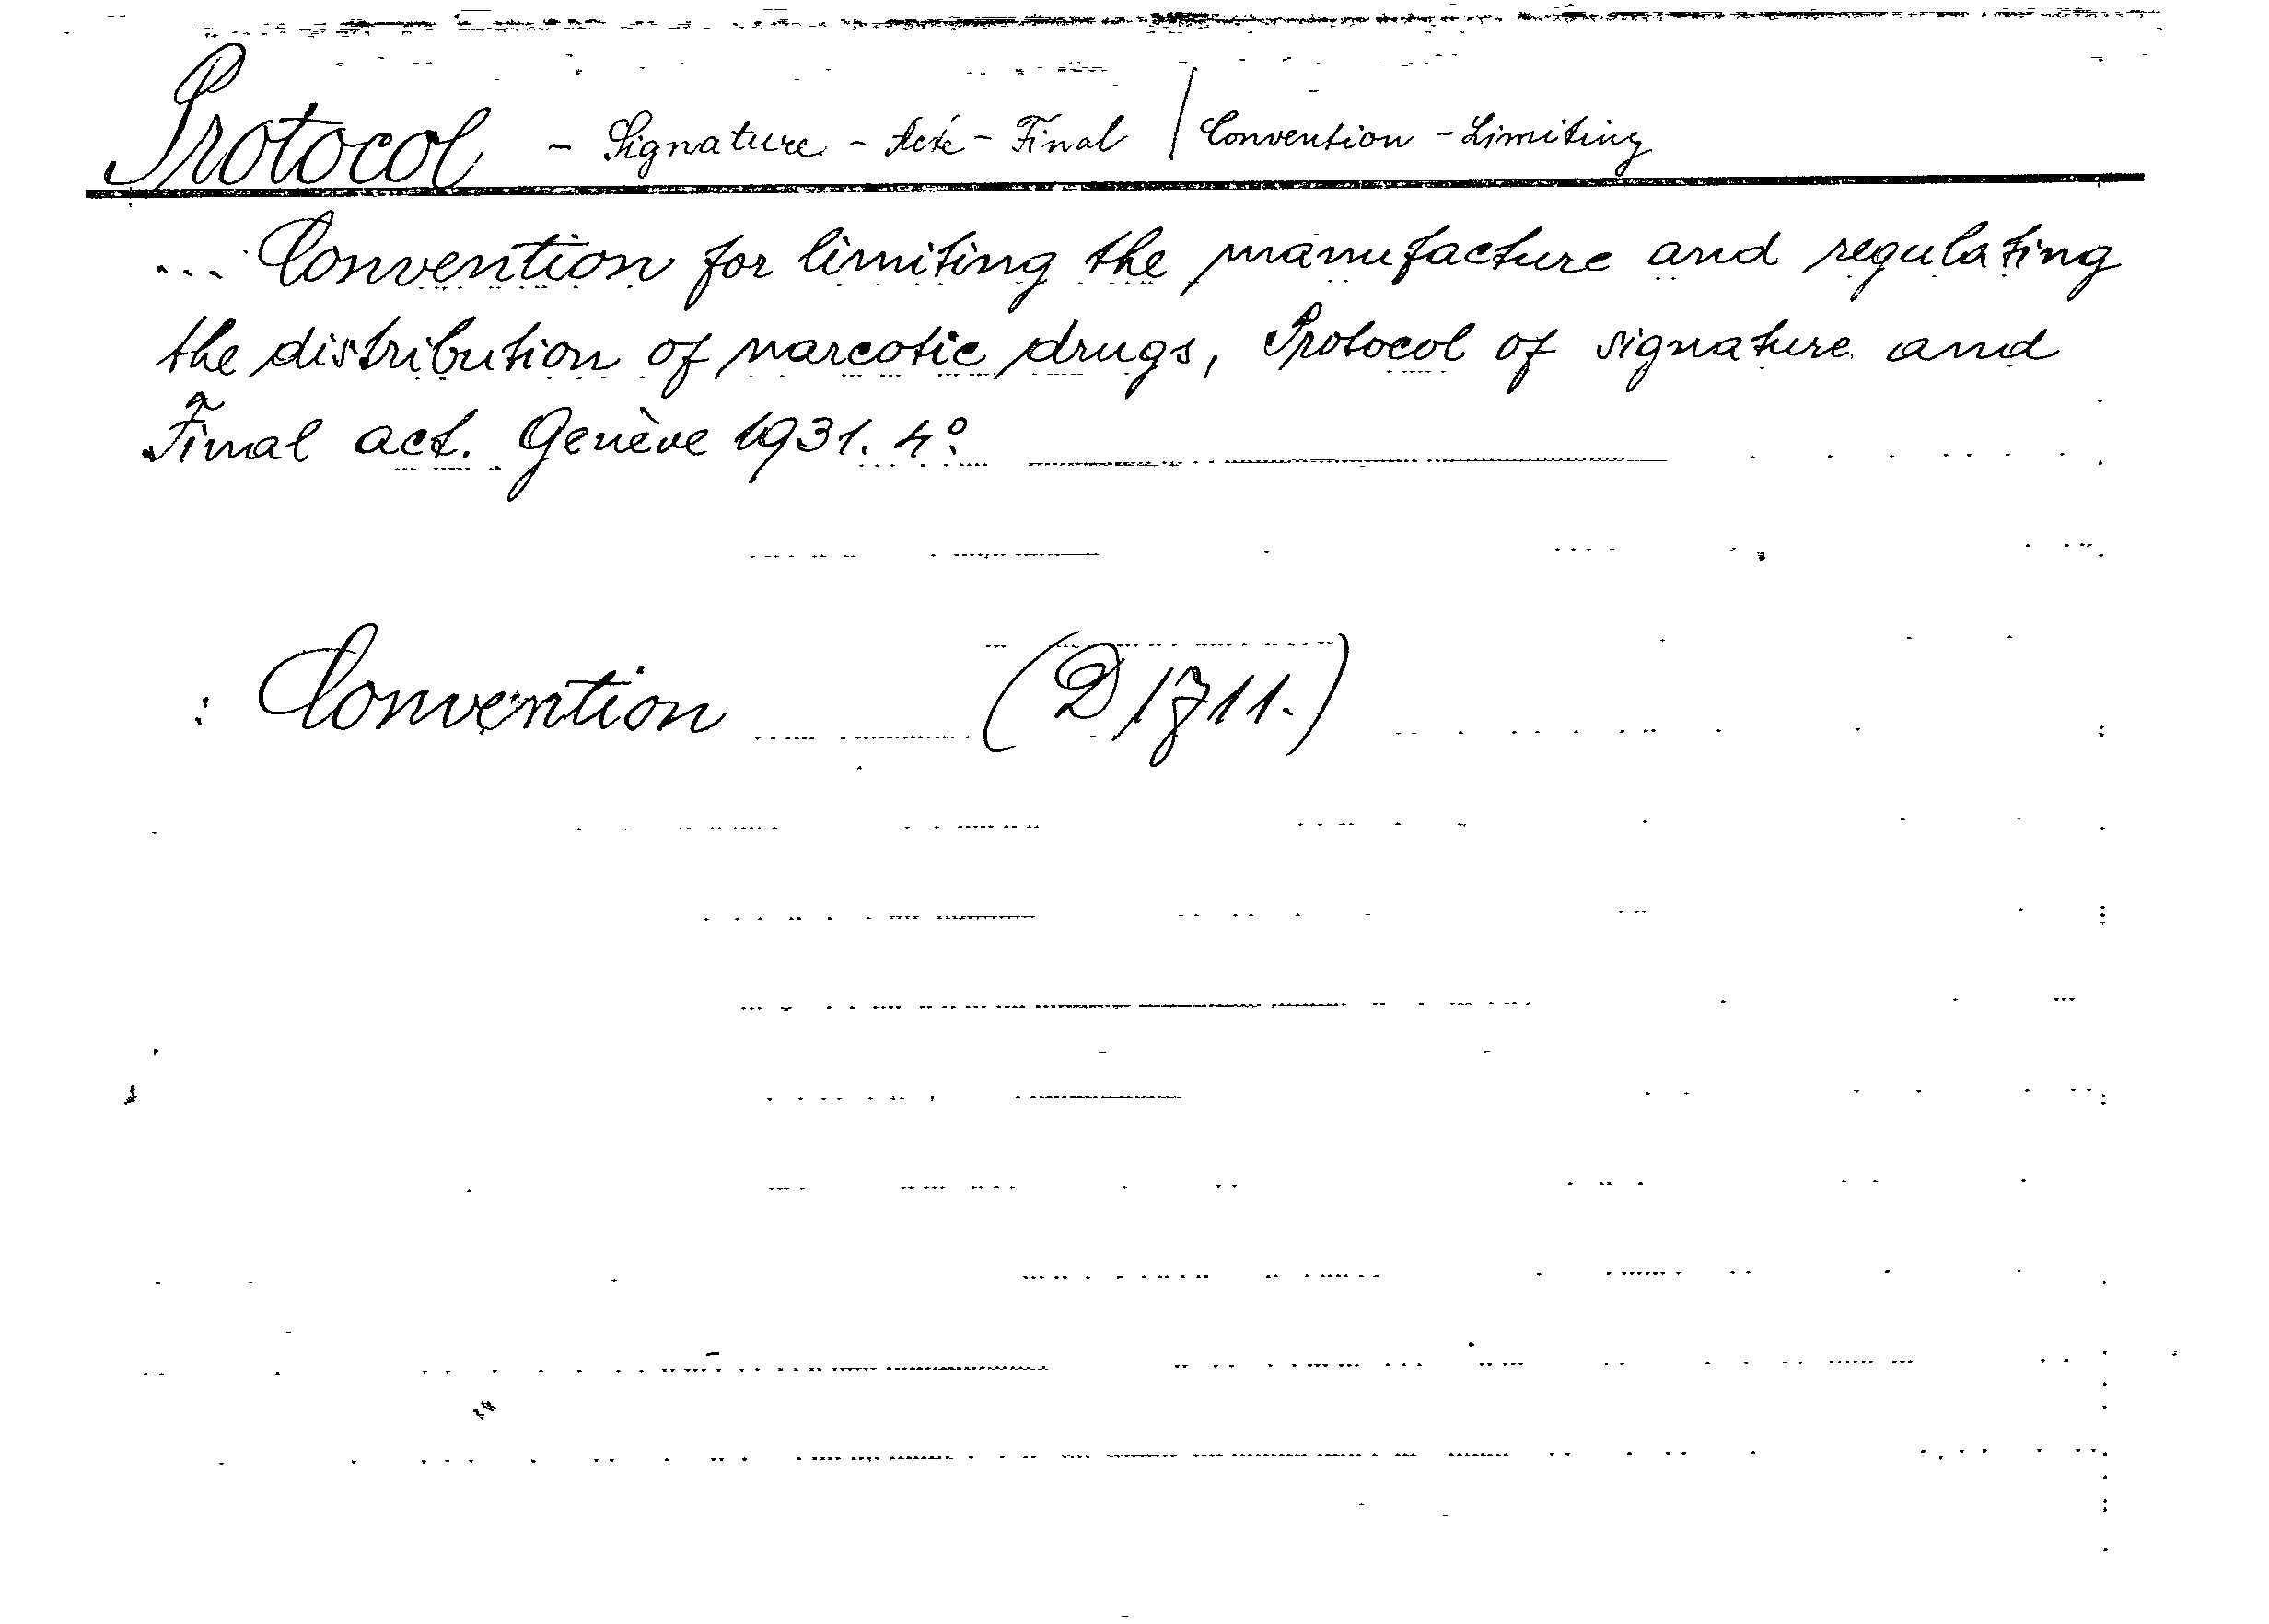 Protocol - Signature - Acte - Final / Convention - Limiting
... Convention for limiting the manufacture and regulating
the distribution of narcotic drugs, Protocol of signature and
Final act. Genève 1931. 4°.
: Convention (D 1711.)